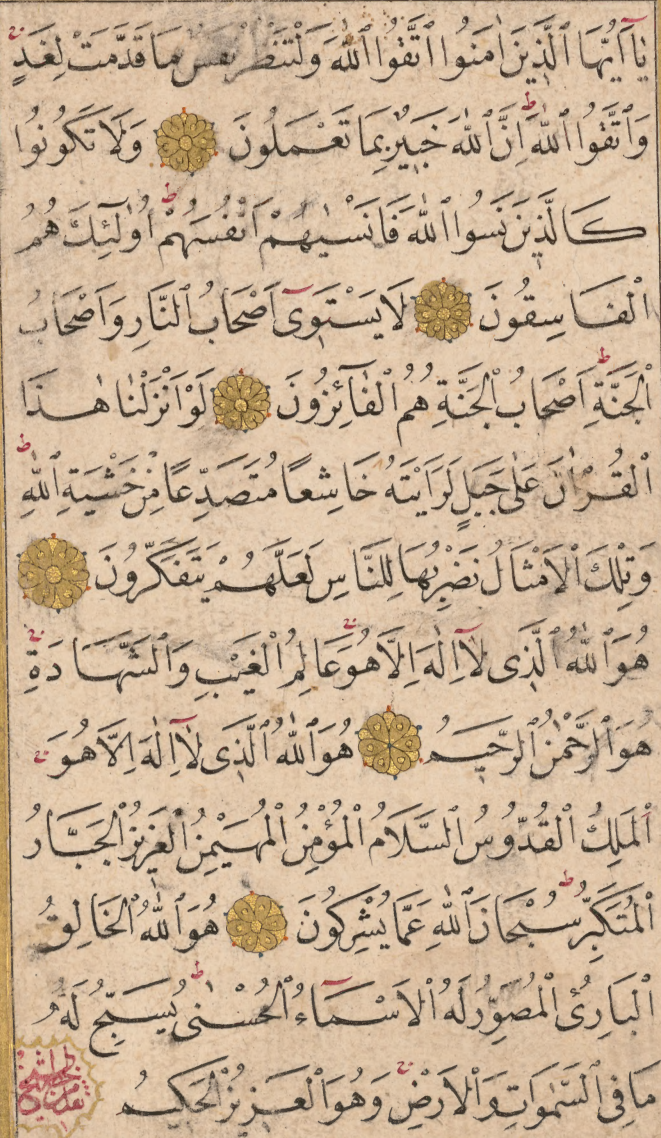 يَٓا اَيُّهَا الَّذ۪ينَ اٰمَنُوا اتَّقُوا اللّٰهَ وَلْتَنْظُرْ نَفْسٌ مَا قَدَّمَتْ لِغَدٍ
وَاتَّقُوا اللّٰهَ اِنَّ اللّٰهَ خَب۪يرٌ بِمَا تَعْمَلُونَ وَلَا تَكُونُوا
كَالَّذ۪ينَ نَسُوا اللّٰهَ فَاَنْسٰيهُمْ اَنْفُسَهُمْ اُو۬لٰٓئِكَ هُمُ
الْفَاسِقُونَ لَا يَسْتَو۪ٓى اَصْحَابُ النَّارِ وَاَصْحَابُ
الْجَنَّةِ اَصْحَابُ الْجَنَّةِ هُمُ الْفَٓائِزُونَ لَوْ اَنْزَلْنَا هٰذَا
الْقُرْاٰنَ عَلٰى جَبَلٍ لَرَاَيْتَهُ خَاشِعًا مُتَصَدِّعًا مِنْ خَشْيَةِ اللّٰهِ
وَتِلْكَ الْاَمْثَالُ نَضْرِبُهَا لِلنَّاسِ لَعَلَّهُمْ يَتَفَكَّرُونَ
هُوَ اللّٰهُ الَّذ۪ى لَٓا اِلٰهَ اِلَّا هُوَ عَالِمُ الْغَيْبِ وَالشَّهَادَةِ
هُوَ الرَّحْمٰنُ الرَّح۪يمُ هُوَ اللّٰهُ الَّذ۪ى لَٓا اِلٰهَ اِلَّا هُوَ
اَلْمَلِكُ الْقُدُّوسُ السَّلَامُ الْمُؤْمِنُ الْمُهَيْمِنُ الْعَز۪يزُ الْجَبَّارُ
الْمُتَكَبِّرُ سُبْحَانَ اللّٰهِ عَمَّا يُشْرِكُونَ هُوَ اللّٰهُ الْخَالِقُ
الْبَارِئُ الْمُصَوِّرُ لَهُ الْاَسْمَٓاءُ الْحُسْنٰى يُسَبِّحُ لَهُ
مَا فِى السَّمٰوَاتِ وَالْاَرْضِ وَهُوَ الْعَز۪يزُ الْحَك۪يمُ